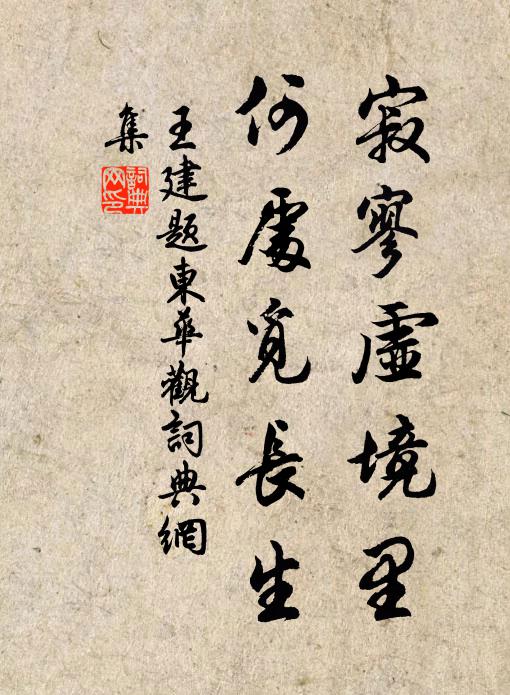 寂寥虛境里
何處覓長生
王建題東華觀詞典網
集
詞典
网印